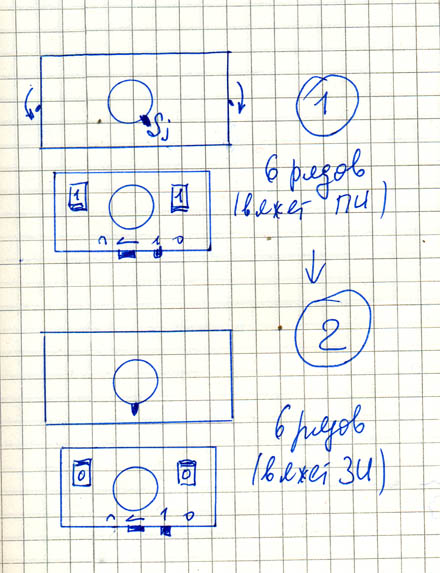 Sj
1
6 рядов
(вяжет ПИ)
1 1
^ ← 1 0
2
6 рядов
(вяжет ЗИ)
0 0
^ ← 1 0